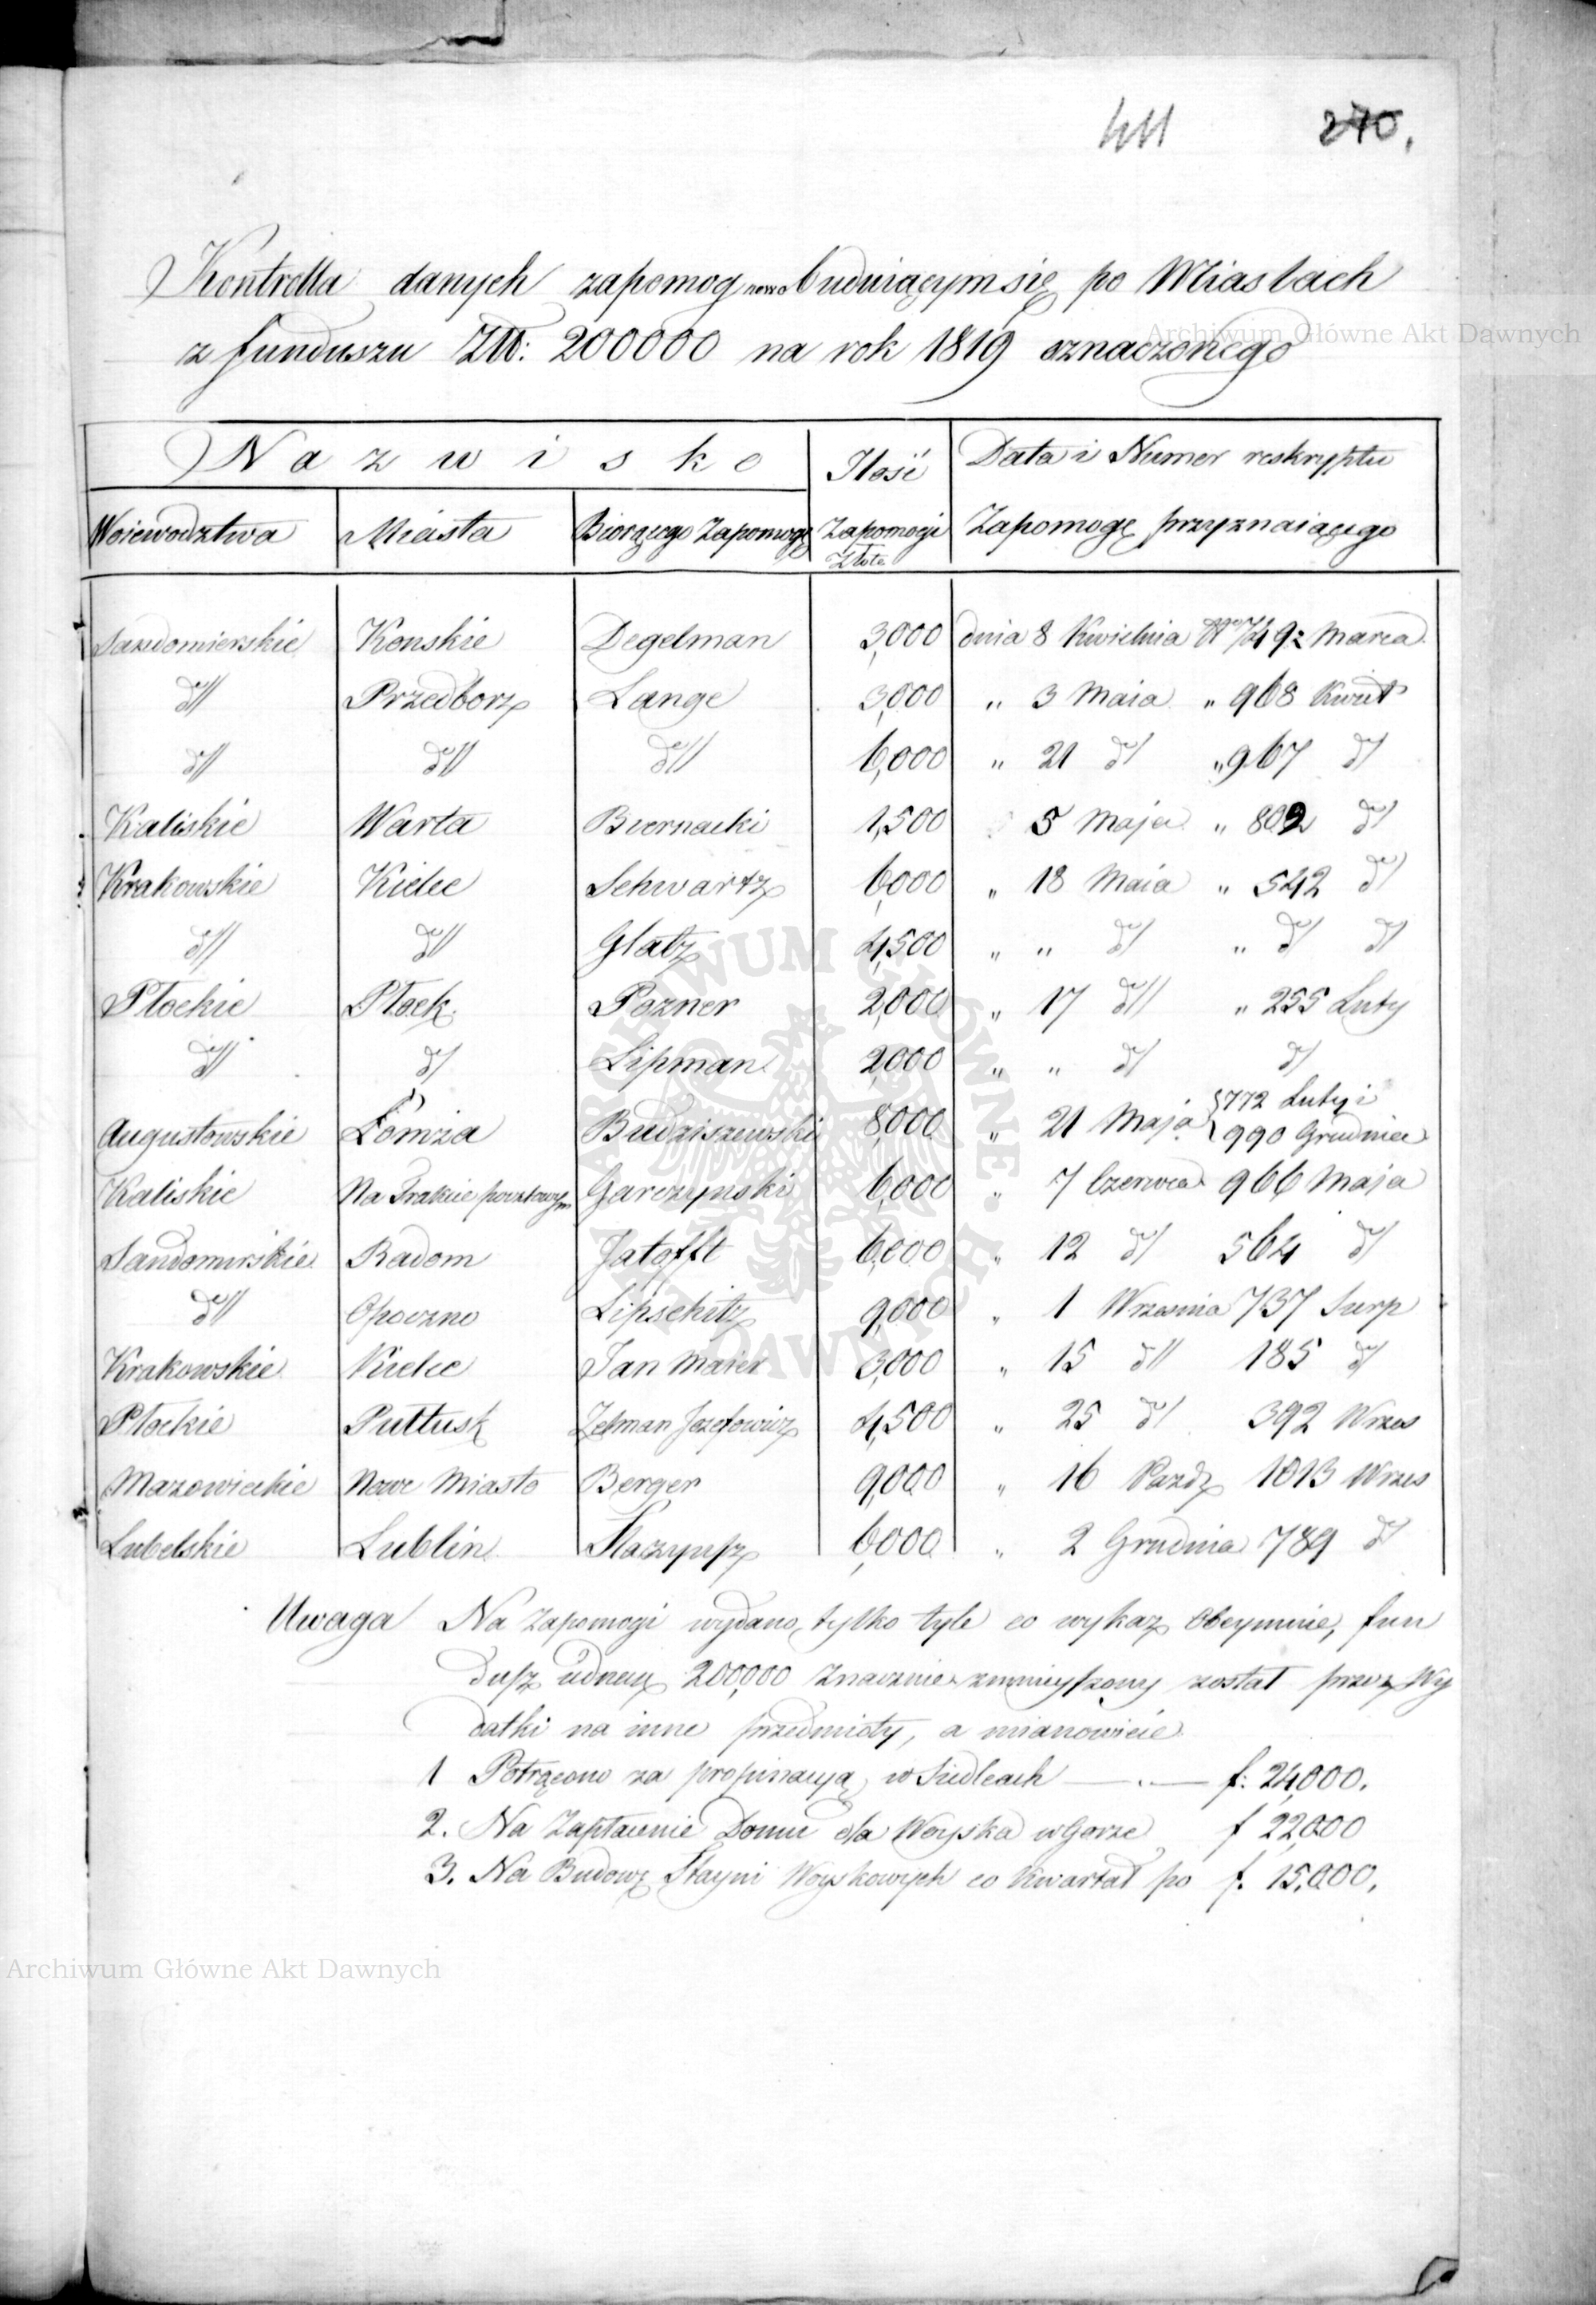 411 270.
Kontrolla danych zapomog nowo buduiącym się po Miastach
z funduszu Złt: 200000 na rok 1819 oznaczonego
Nazwisko Ilość Data i Numer reskryptu
Woiewodztwa Miasta Biorącego Zapomogę Zapomogi Zapomogę przyznaiącego
Złote
Sandomierskie Konskie Degelman 3,000 dnia 8 Kwietnia N 749 z Marca
d// Przedborz Lange 3,000 " 3 Maia " 968 Kwiet
d// d// d// 6,000 " 21 d/ " 967 d/
Kaliskie Warta Biernacki 1,500 5 Maja " 802 d/
Krakowskie Kielce Schwartz 6,000 " 18 Maia " 542 d/
d// d// Glatz 4,500 " " d/ " d/ d/
Płockie Płock Pozner 2,000 " 17 d// " 255 Luty
d// d/ Lipman 2,000 " " d/ d/
Augustowskie Łomża Budziszewski 8,000 " 21 Maja 772 Luty i
990 Grudnia
Kaliskie Na Trakcie pocztowym Garczynski 6,000 " 7 Czerwca 966 Maja
Sandomirskie Radom Jatofft 6,000 " 12 d/ 564 d/
d// Opoczno Lipschitz 9,000 " 1 Wrzesnia 737 Sierp
Krakowskie Kielce Jan Maier 3,000 " 15 d// 185 d/
Płockie Pułtusk Zelman Jozefowicz 4,500 " 25 d/ 392 Wrzes
Mazowieckie Nowe Miasto Berger 9,000 " 16 Pazdz 1013 Wrzes
Lubelskie Lublin 6,000 " 2 Grudnia 789 d/
Uwaga Na Zapomogi wydano tylko tyle co wykaz obeymuie, fun
dusz 200,000 znacznie zmnieyszony został przez Wy
datki na inne przedmioty, a mianowicie
1 Potrącono za propinacyą w Siedlcach — . — f: 24,000.
2. Na Zapłacenie Domu dla Woyska w Gorze f 22,000
3. Na Budowę Stayni Woyskowych co Kwartał po f. 15,000.
Archiwum Główne Akt Dawnych
ARCHIWUM GŁÓWNE AKT DAWNYCH
Archiwum Główne Akt Dawnych